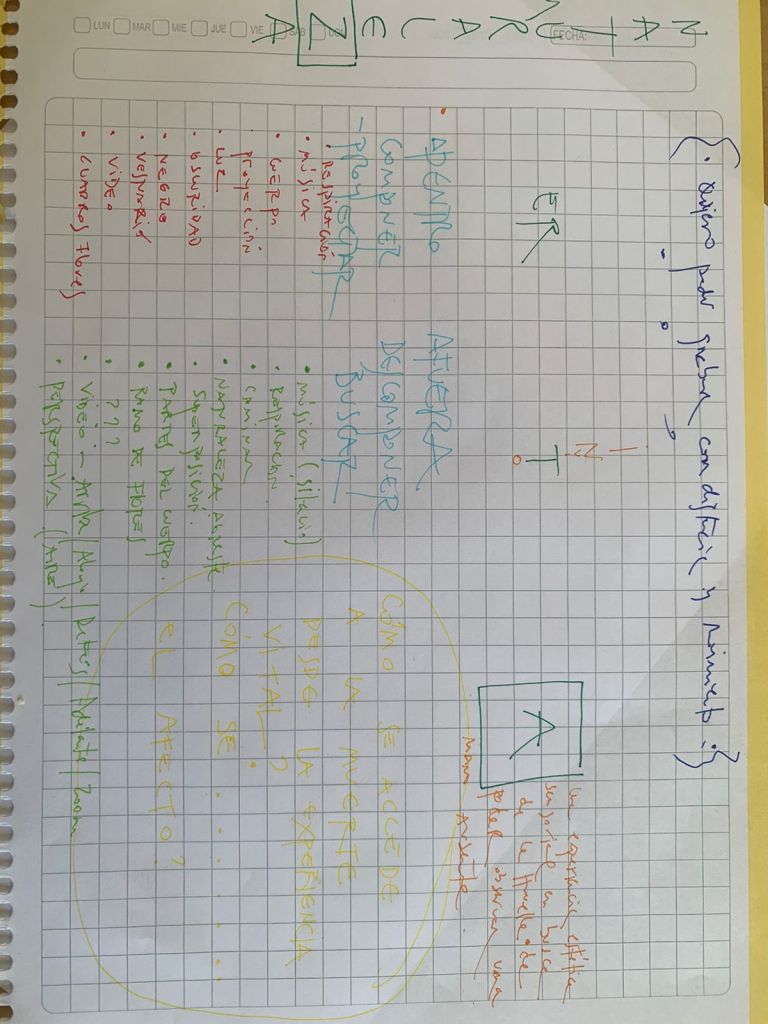 NATURALEZA
LUN MAR MIE JUE VIE SAB DOM
FECHA:
{ • Quiero poder grabar con distancia y movimiento. }
ER
INTO
A
una experiencia estética
sensorial en busca
de la huella de
poder observar una
mamá ausente.
• ADENTRO
COMPONER
- PROYECTAR
• RESPIRACIÓN
• MÚSICA
• CUERPO
PROYECCIÓN
• LUZ
• OSCURIDAD
• NEGRO
• VESTUARIO
• VIDEO
• CUADROS FLORES
AFUERA
DESCOMPONER
BUSCAR
• MÚSICA (SILENCIO)
• RESPIRACIÓN
• CAMINAR
• NATURALEZA AGRESTE
SUPERPOSICIÓN.
• PARTES DEL CUERPO.
• RAMO DE FLORES
• ???
• VIDEO - Arriba / Abajo / Detrás / Adelante / Zoom
• PERSPECTIVA (AIRE)
CÓMO SE ACCEDE
A LA MUERTE
DESDE LA EXPERIENCIA
VITAL?
CÓMO SE . . . . . . .
EL AFECTO?